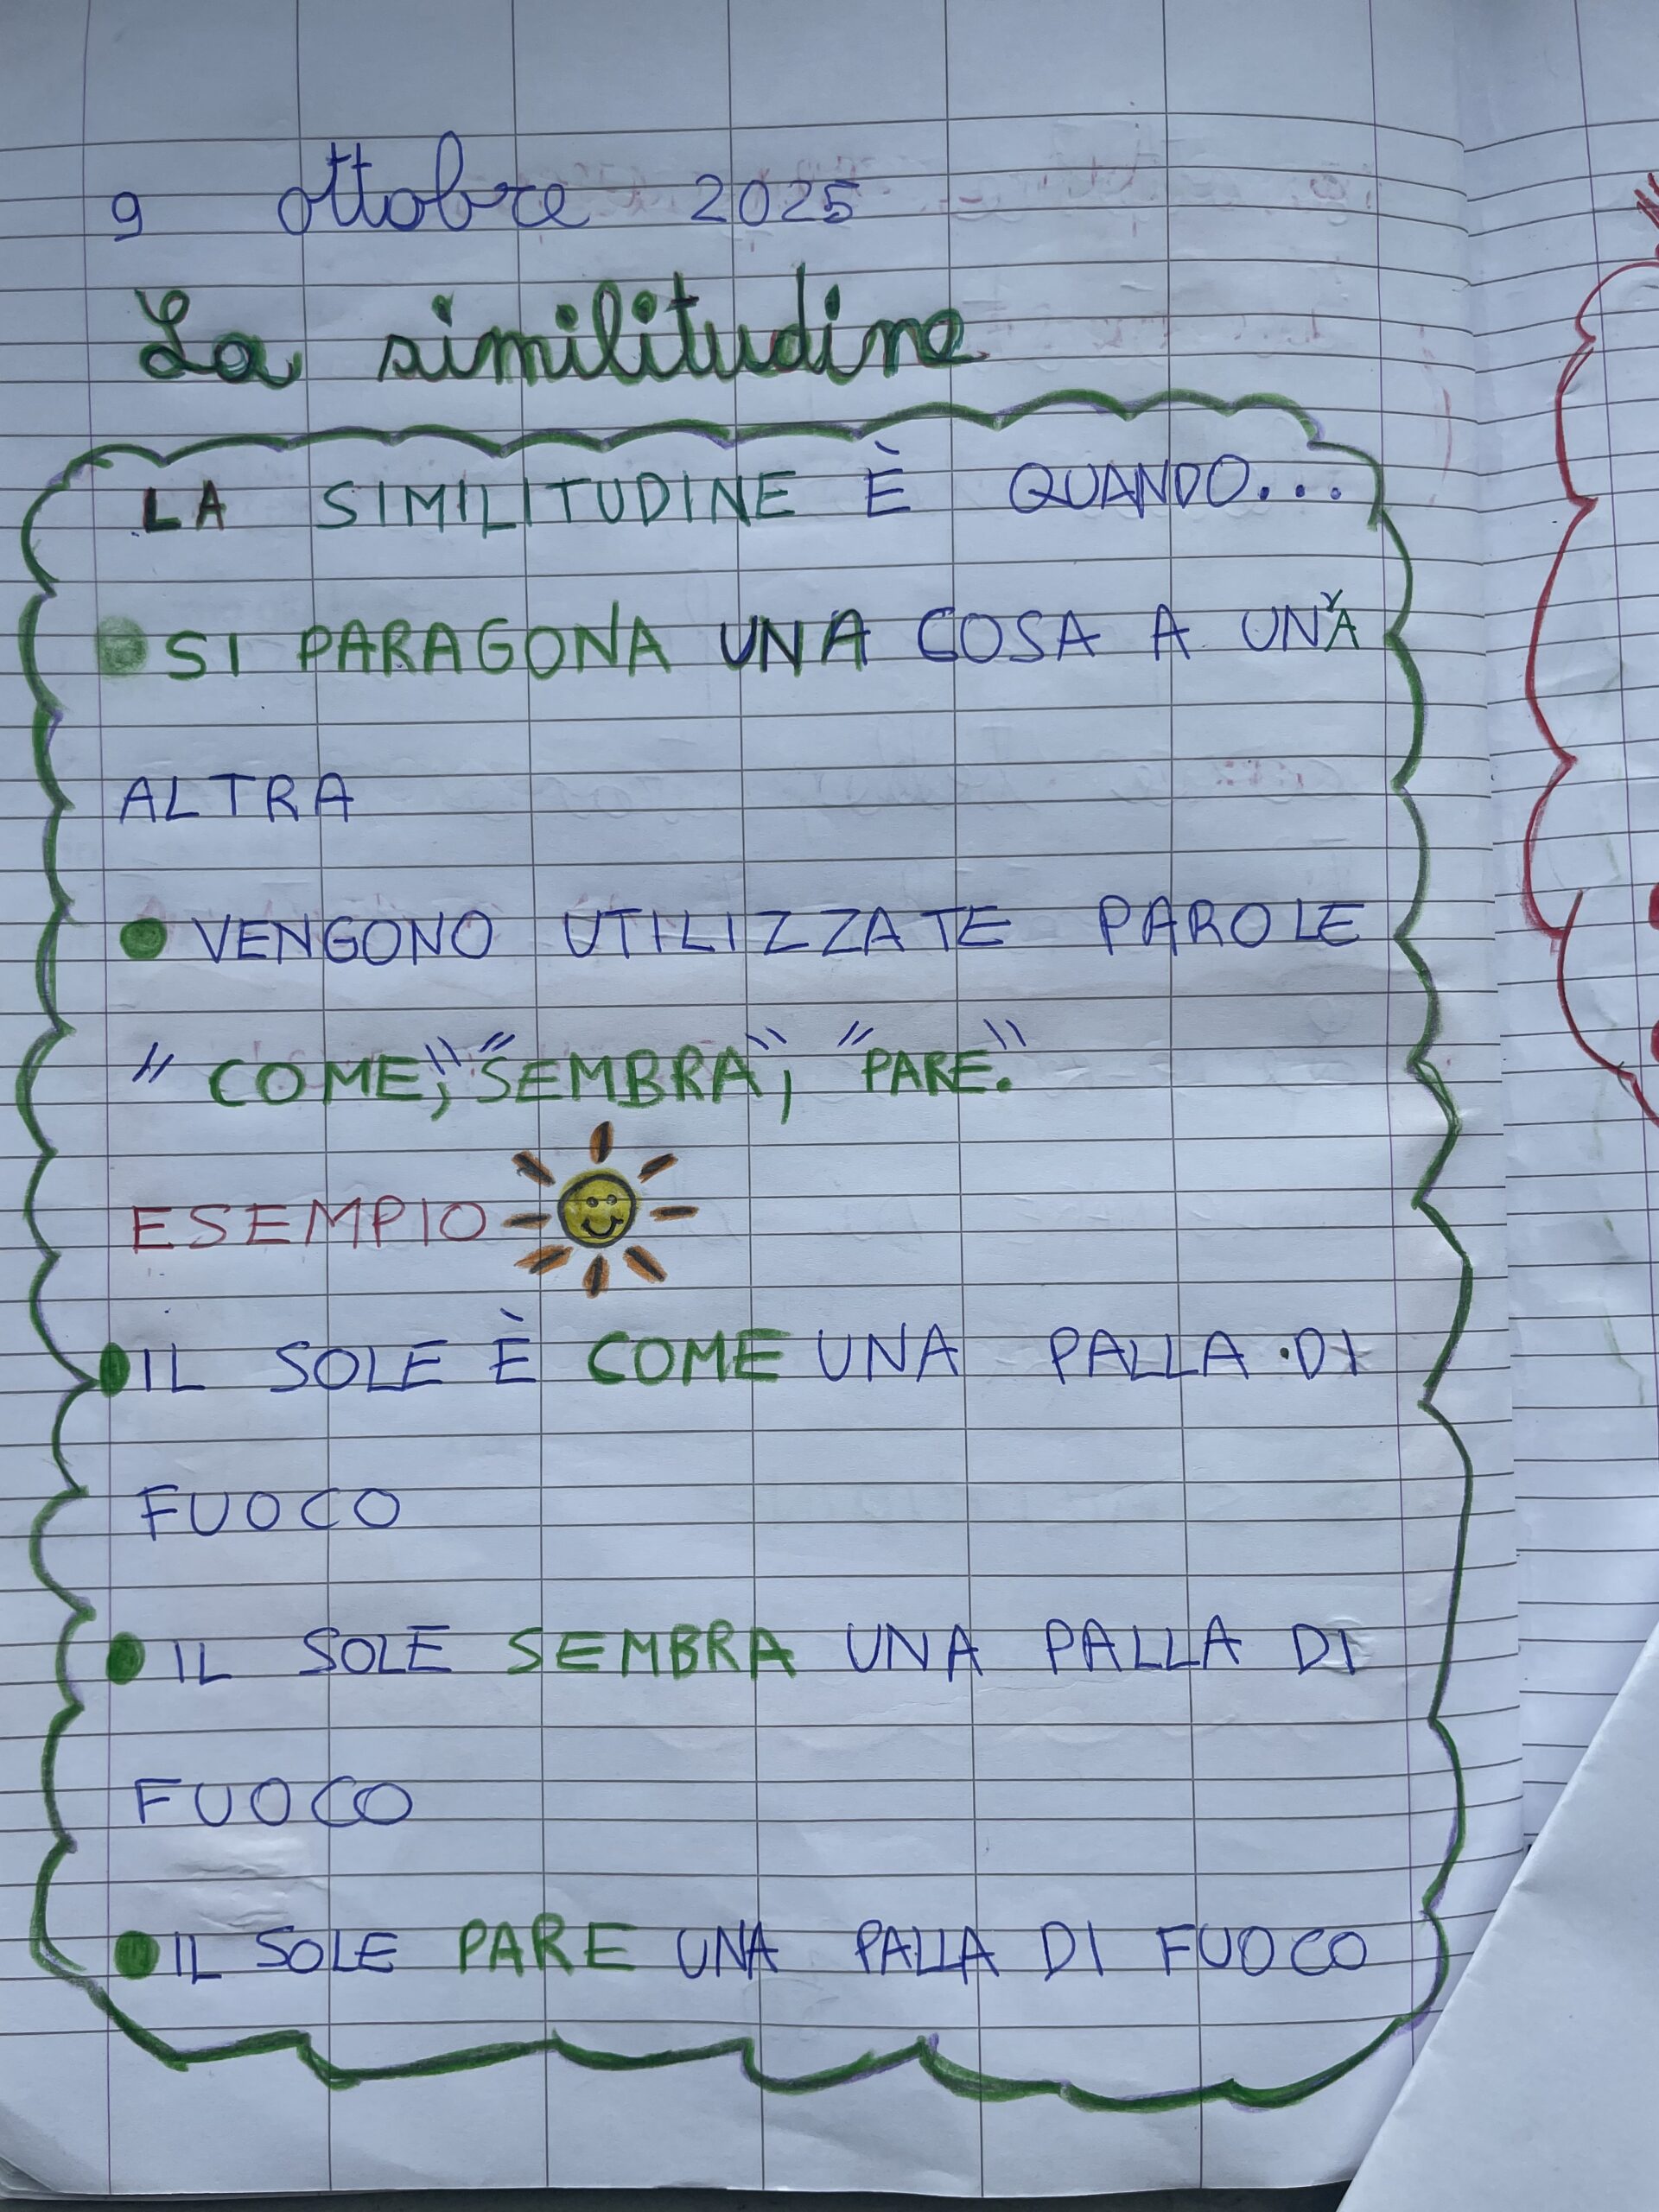 9 ottobre 2025
La similitudine
LA SIMILITUDINE È QUANDO...
SI PARAGONA UNA COSA A UNA
ALTRA
VENGONO UTILIZZATE PAROLE
"COME", "SEMBRA", "PARE."
ESEMPIO
IL SOLE È COME UNA PALLA DI
FUOCO
IL SOLE SEMBRA UNA PALLA DI
FUOCO
IL SOLE PARE UNA PALLA DI FUOCO